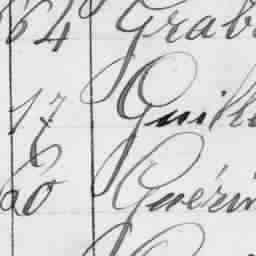 64 Grab
17 Guill
60 Guérin